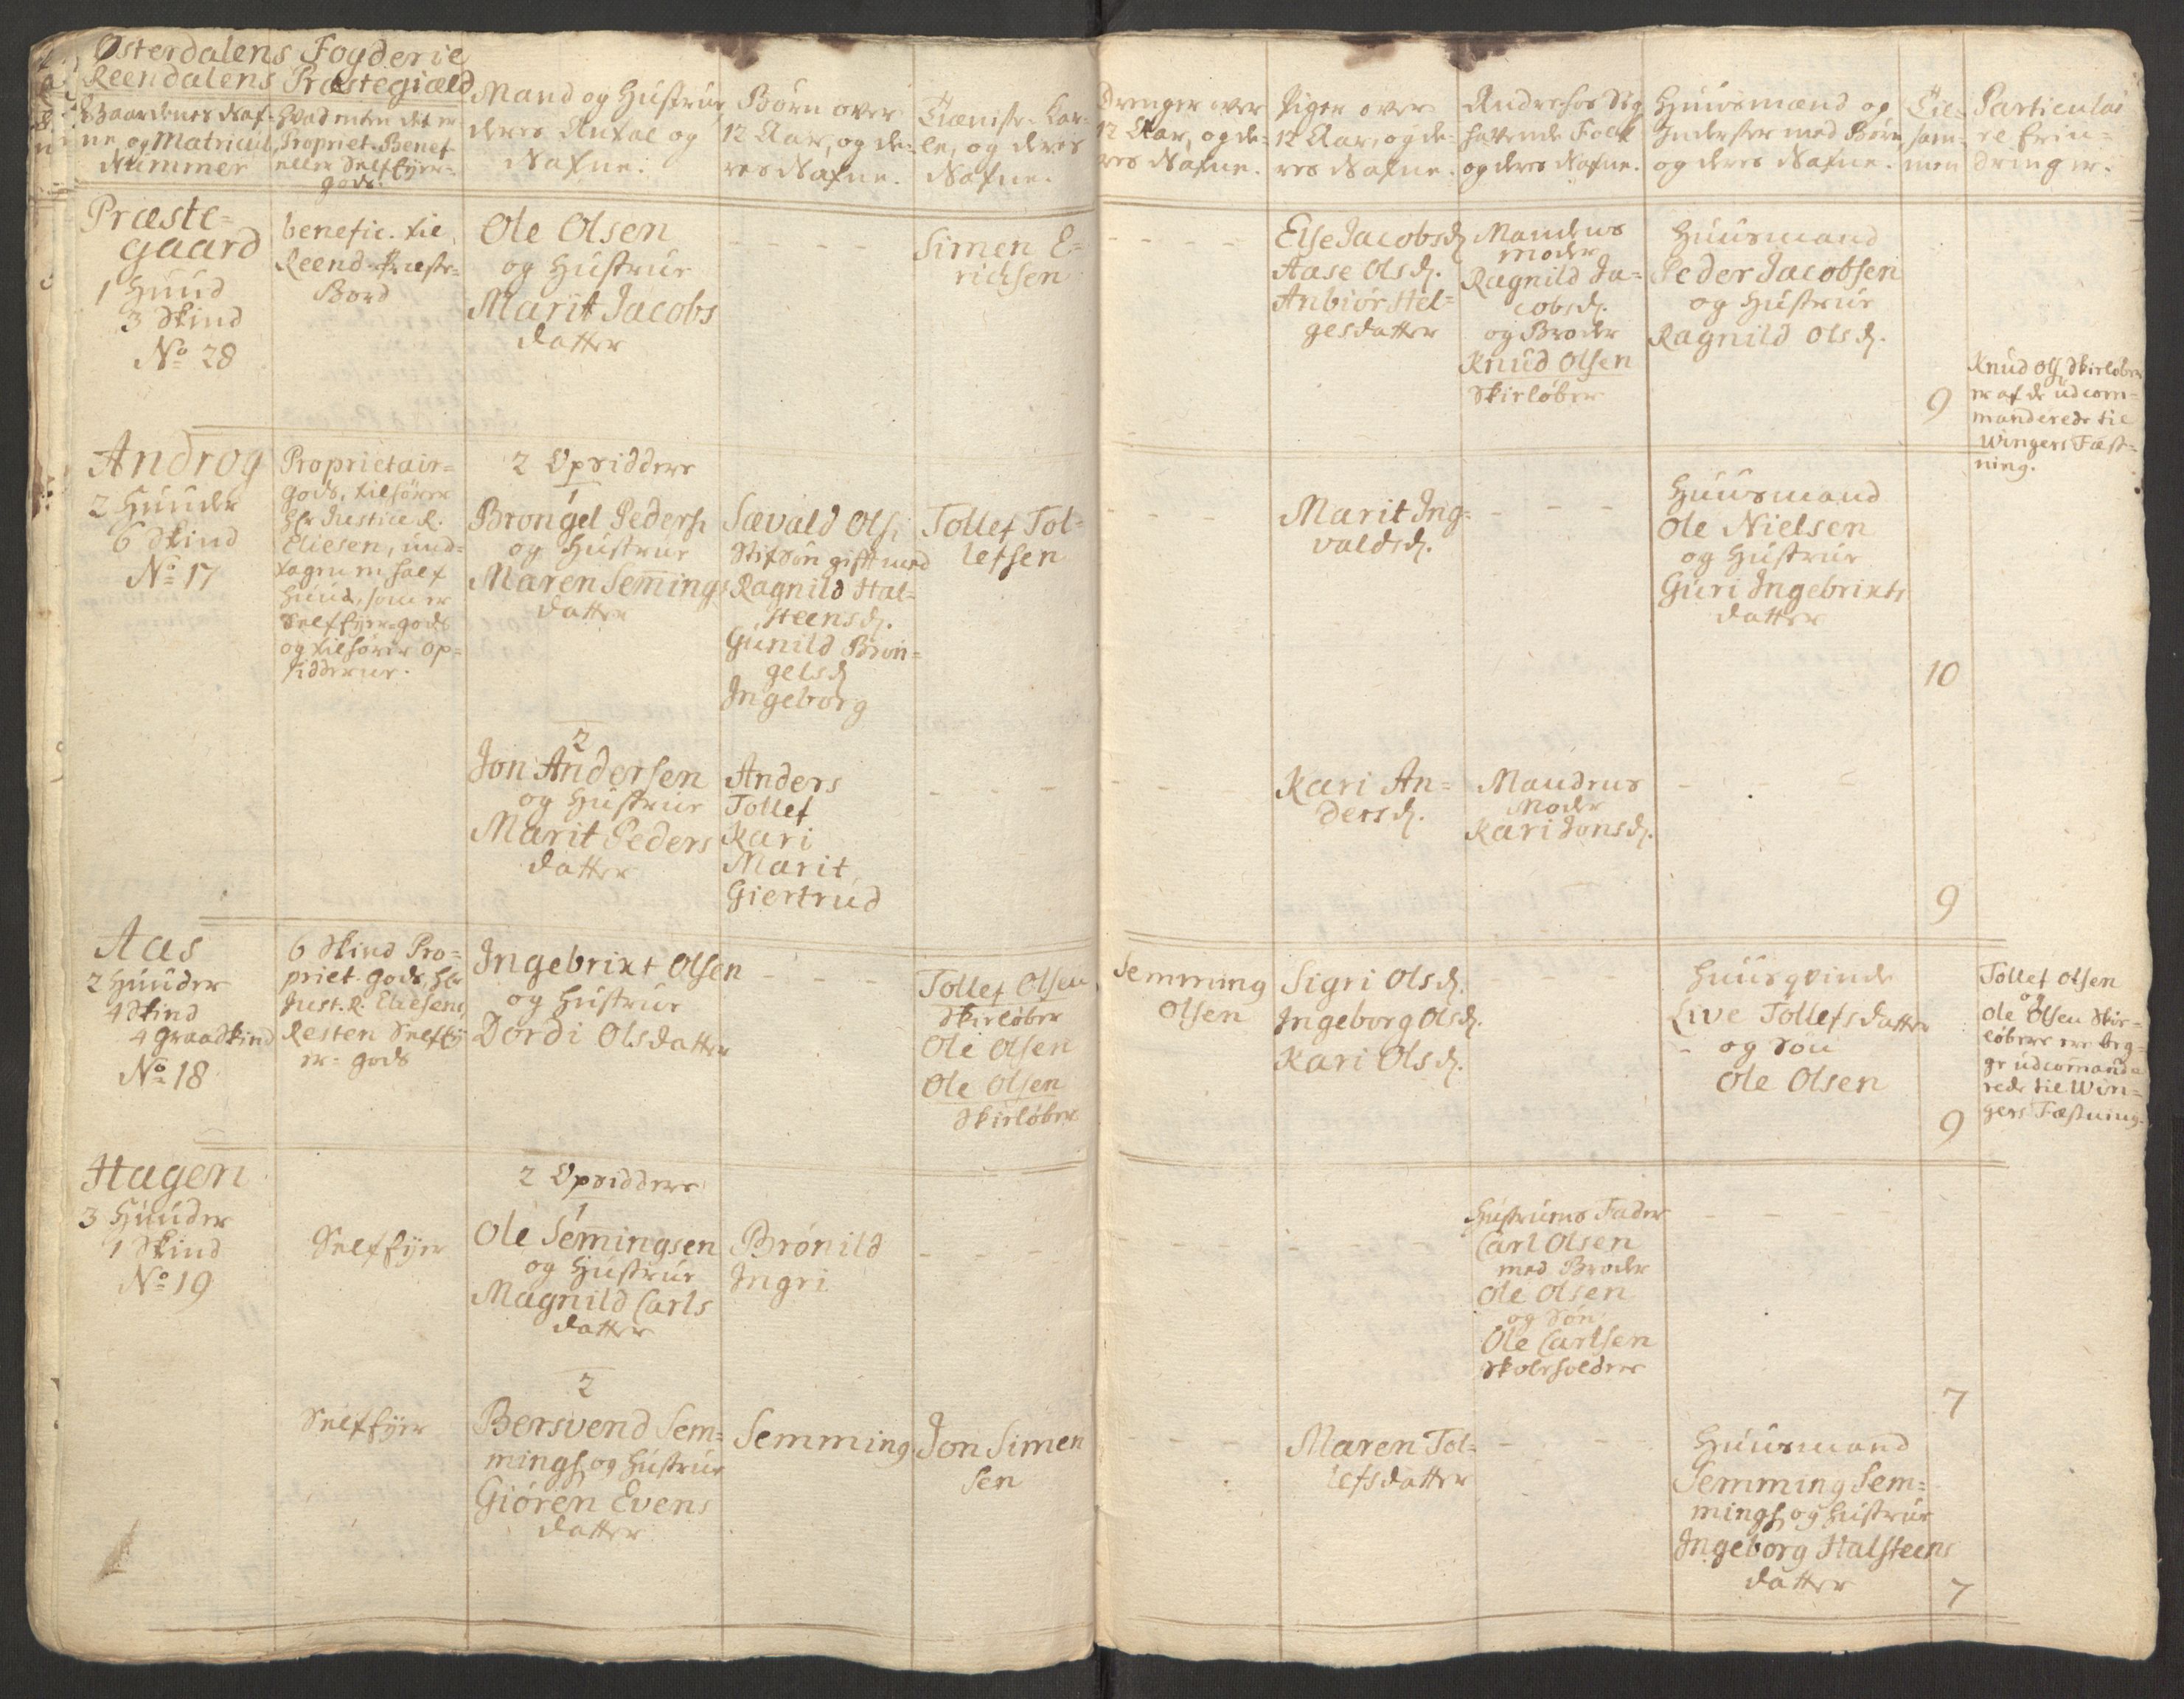 Østerdalens Foyderie
Reendalens Præstegiæld
Gaardenes Naf-
ne, og Matricul
Nummer
Hvad enten det er
Propriet. Benef.
eller Selfeyer-
gods.
Mand og Hustrue,
deres Antal og
Nafne.
Børn over
12 Aar, og de-
res Nafne.
Tieniste-Kar-
le, og deres
Nafne.
Drenger over
12 Aar, og de-
res Nafne.
Piger over
12 Aar, og de-
res Nafne.
Andre hos Sig
havende Folk
og deres Nafne.
Huusmænd og
Inderster med Børn
og deres Nafne.
Til-
sam-
men
Particulai-
re Erin-
dringer.
Præste-
gaard
1 Huud
3 Skind
No 28
benefic. til
Reend. Præste-
Bord
Ole Olsen
og Hustrue
Marit Jacobs
datter
Simen E-
richsen
Else Jacobsd.
Aase Olsd.
Anbiør Hel-
gesdatter
Mandens
Moder
Ragnild Ja-
cobsd.
og Broder
Knud Olsen
Skieløber
Huusmand
Peder Jacobsen
og Hustrue
Ragnild Olsd.
9
Knud Ols. Skieløber
er af de udcom-
manderede til
Wingers Fæst-
ning.
Androg
2 Huuder
6 Skind
No 17
Proprietair-
gods, tilhører
Hr Justice R.
Eliesen, und-
tagen en half
Huud, som er
Selfeyer-gods
og tilhører Op-
sidderne.
2 Opsiddere
1
Brongel Peders.
og Hustrue
Maren Semings
datter
Sævald Ols.
Stifsøn gift med
Ragnild Hal-
steensd.
Gunild Bron-
gelsd
Ingeborg
Tollef Tol-
lefsen
Marit Ing-
valdsd.
Huusmand
Ole Nielsen
og Hustrue
Guri Ingebrixts
datter
10
2
Jon Andersen
og Hustrue
Marit Peders
datter
Anders
Tollef
Kari
Marit
Giertrud
Kari An-
dersd.
Mandens
Moder
Kari Jonsd.
9
Aas
2 Huuder
4 Skind
4 Graaskind
No 18
6 Skind Pro-
priet. gods, Hr
Just. R. Eliesens,
Resten Selfey-
er-gods
Ingebrixt Olsen
og Hustrue
Dordi Olsdatter
Tollef Olsen
Skieløber
Ole Olsen
Ole Olsen
Skieløber
Semming
Olsen
Sigri Olsd.
Ingeborg Olsd.
Kari Olsd.
Huusqvinde
Live Tollefsdatter
og Søn
Ole Olsen
9
Tollef Olsen
og
Ole Olsen Skie-
løbere ere beg-
ge udcomande-
rede til Win-
gers Fæstning.
Hagen
3 Huuder
1 Skind
No 19
Selfeyer
2 Opsiddere
1
Ole Semingsen
og Hustrue
Magnild Carls
datter
Brønild
Ingri
Hustruens Fader
Carl Olsen
med Broder
Ole Olsen
og Søn
Ole Carlsen
Skoleholder
7
Selfeyer
2
Bersvend Sem-
mings. og Hustrue
Giøren Evens
datter
Semming
Jon Simen
sen
Maren Tol-
lefsdatter
Huusmand
Semming Sem-
mings. og Hustrue
Ingeborg Halsteens
datter
7